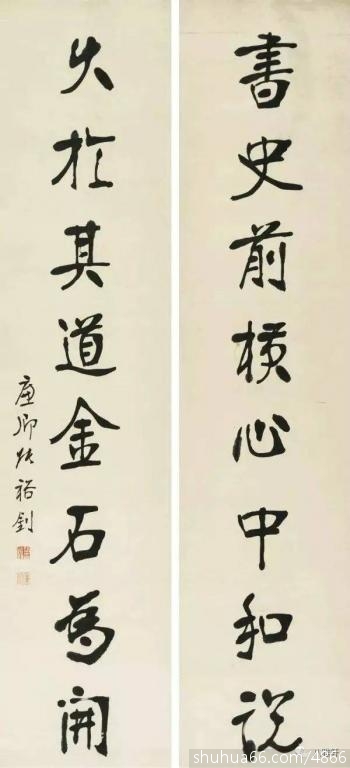 書史前横心中和説
久於其道金石為開
廉卿張裕釗
shuhua66.com/4866